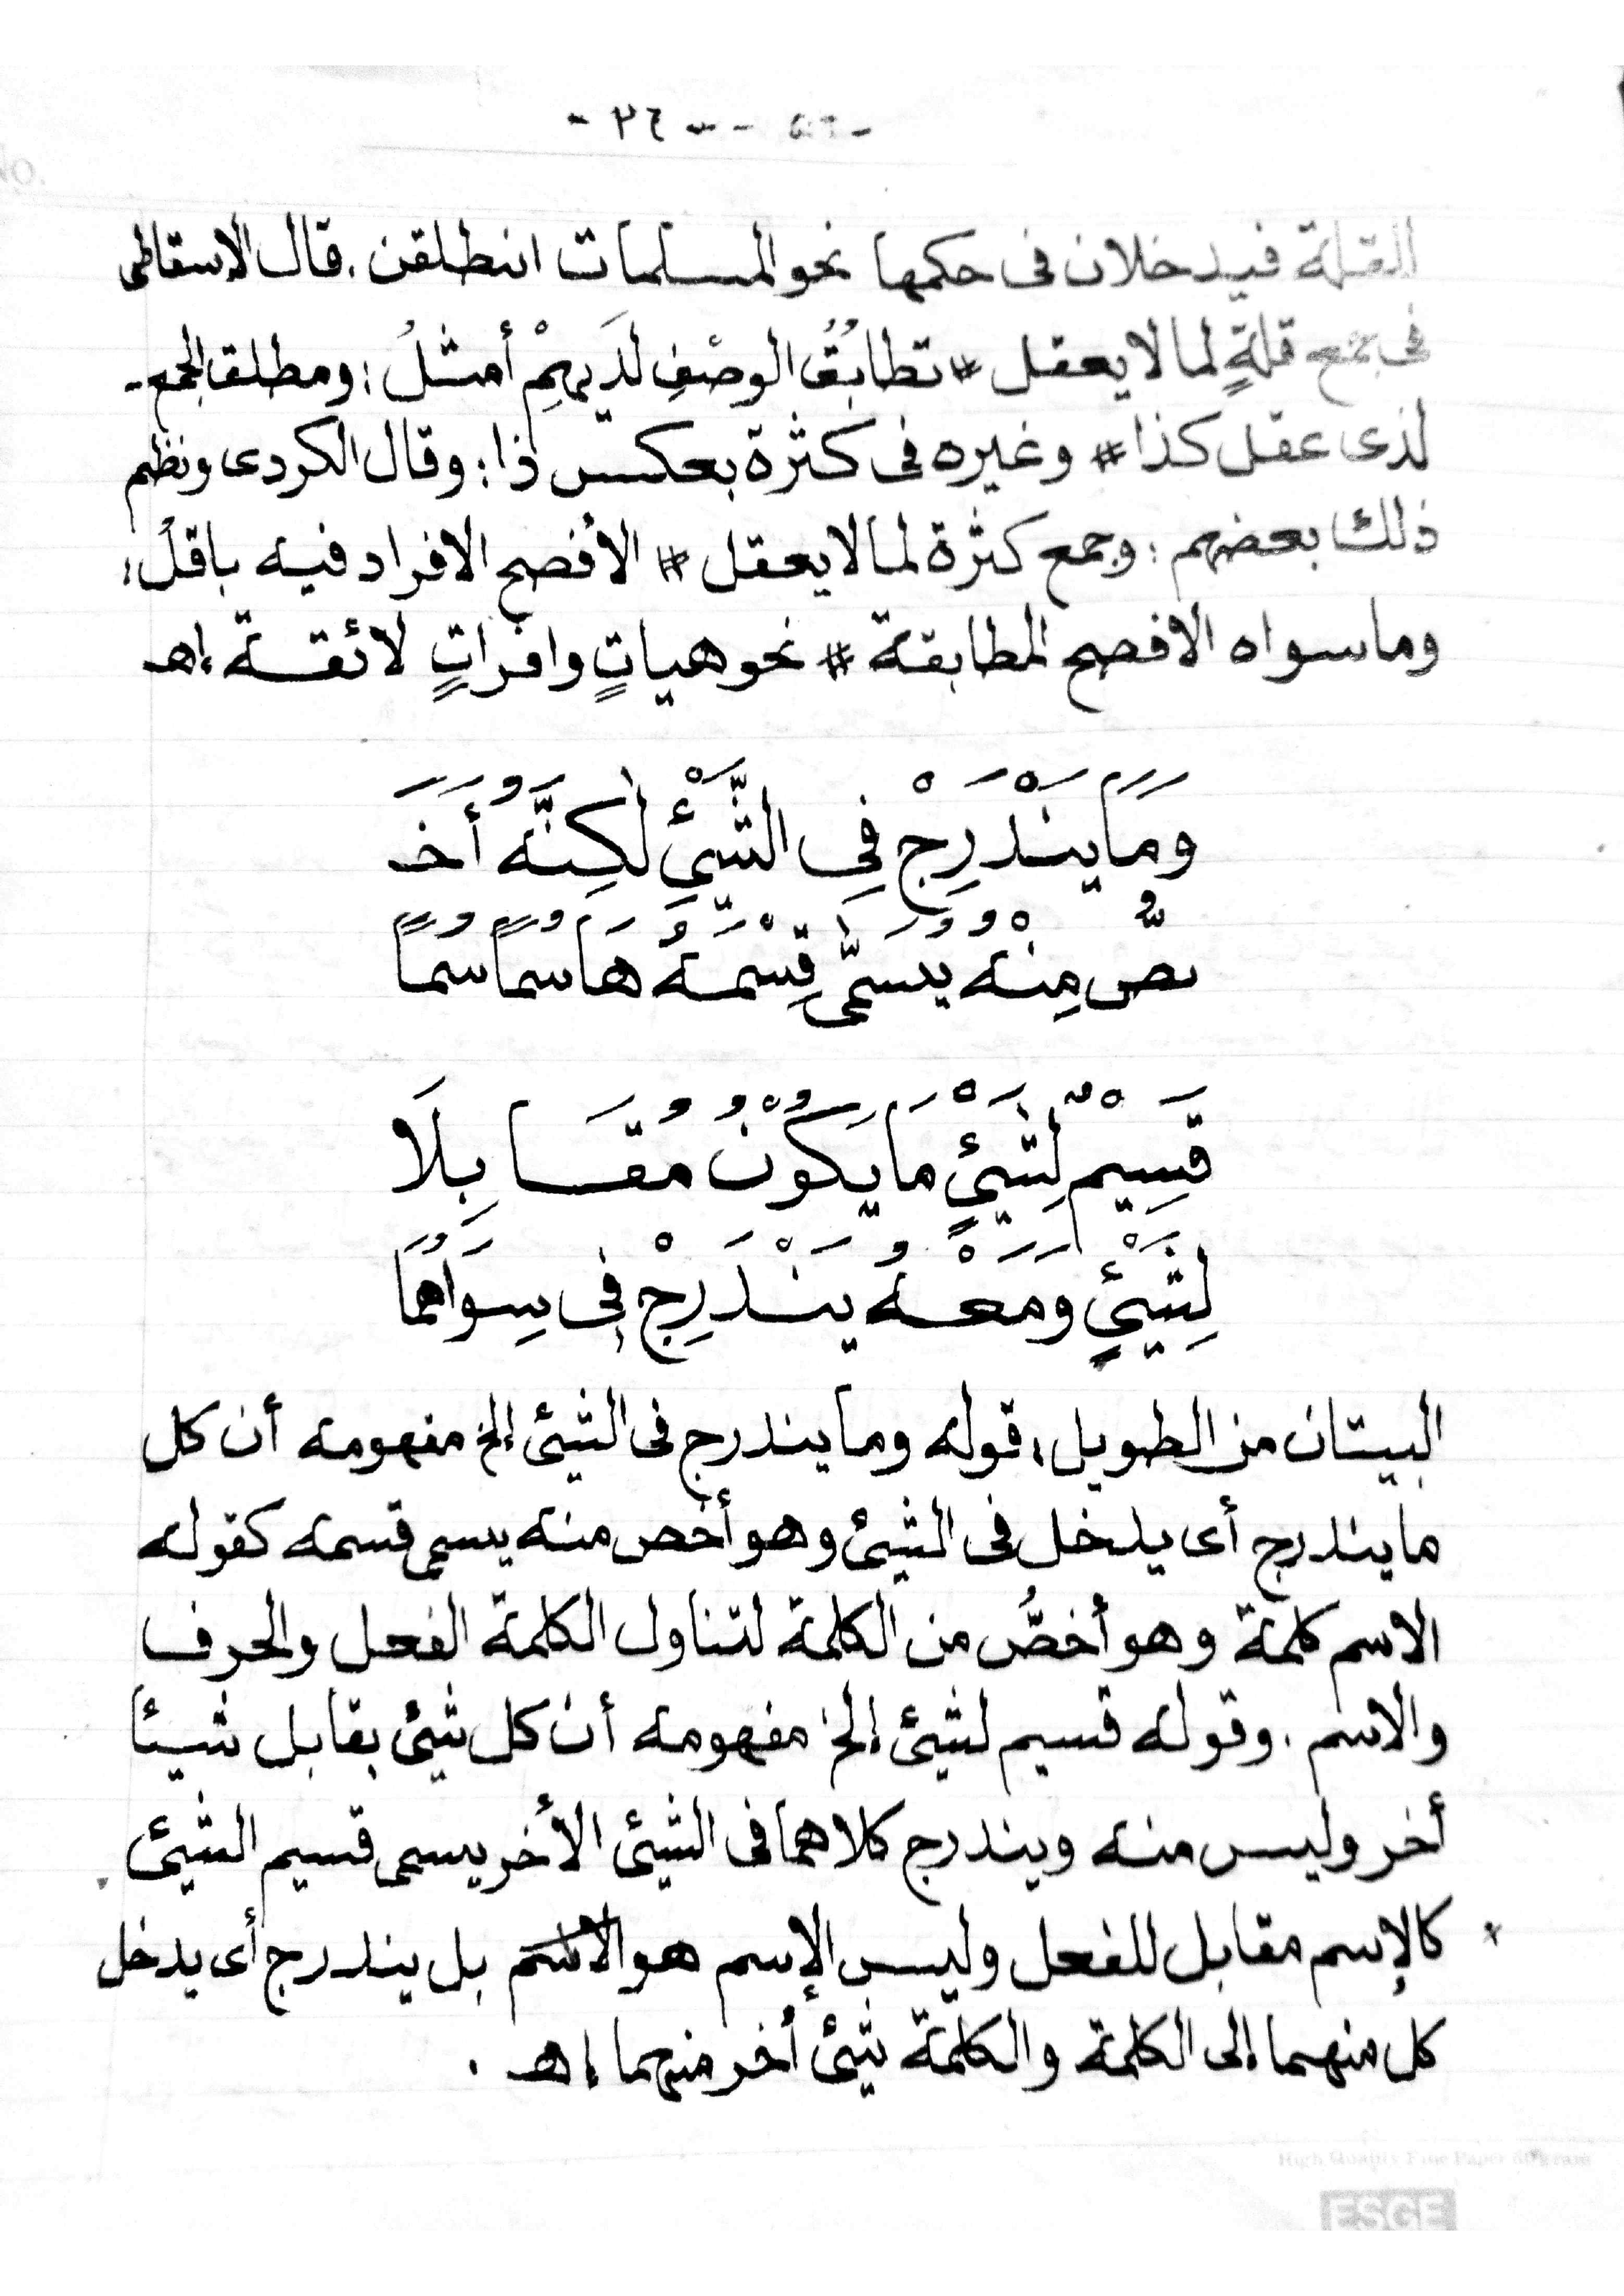 - ٢٤ -
القلة فيدخلان فى حكمها نحو المسلمات انطلقن . قال الاسقاطى
فى جمع قلةٍ لما لا يعقل # تطابُقُ الوصْفِ لَدَيهِمْ أمثلُ : ومطلقا الجمع -
لذى عقل كذا # وغيره فى كثرة بعكس ذا : وقال الكردى ونظم
ذلك بعضهم : وجمع كثرة لما لا يعقل # الأفصح الافراد فيه ياقلُ :
وما سواه الافصح المطابقة # نحو هياتٍ وافراتٍ لائقة .إهـ
وَمَا يَنْدَرِجْ فِى الشَّيْئِ لٰكِنَّهُ أَخَـ
ـصُّ مِنْهُ يُسَمَّى قِسْمَهُ هَا سُمًا سُمًا
قَسِيْمٌ لِشَيْئٍ مَا يَكُوْنُ مُقَابِلَا
لِشَيْئٍ وَمَعْهُ يَنْدَرِجْ فِى سِوَاهُمَا
البيتان من الطويل ، قوله وما يندرج فى الشيئ إلخ مفهومه أن كل
ما يندرج أى يدخل فى الشيئ وهو أخص منه يسمى قسمه كقوله
الاسم كلمة وهو أخصُّ من الكلمة لتناول الكلمة الفعل والحرف
والاسم . وقوله قسيم لشيئ إلخ مفهومه أن كل شيئ يقابل شيئا
أخر وليس منه ويندرج كلاهما فى الشيئ الأخر يسمى قسيم الشيئ
كالإسم مقابل للفعل وليس الإسم هو الاسم بل يندرج أى يدخل
كل منهما إلى الكلمة والكلمة شيئ أخر منهما إهـ .
High Quality Fine Paper
ESGE